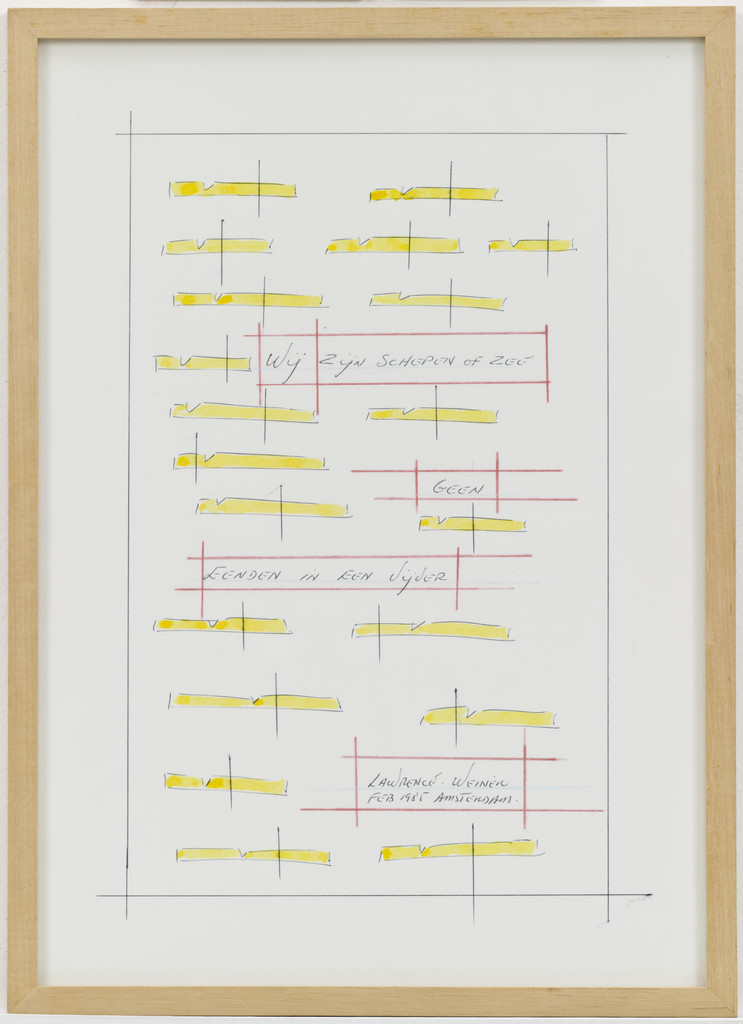 Wij Zijn SCHEPEN OF ZEE
GEEN
EENDEN IN EEN VijVER
LAWRENCE WEINER
FEB 1985 AMSTERDAM.